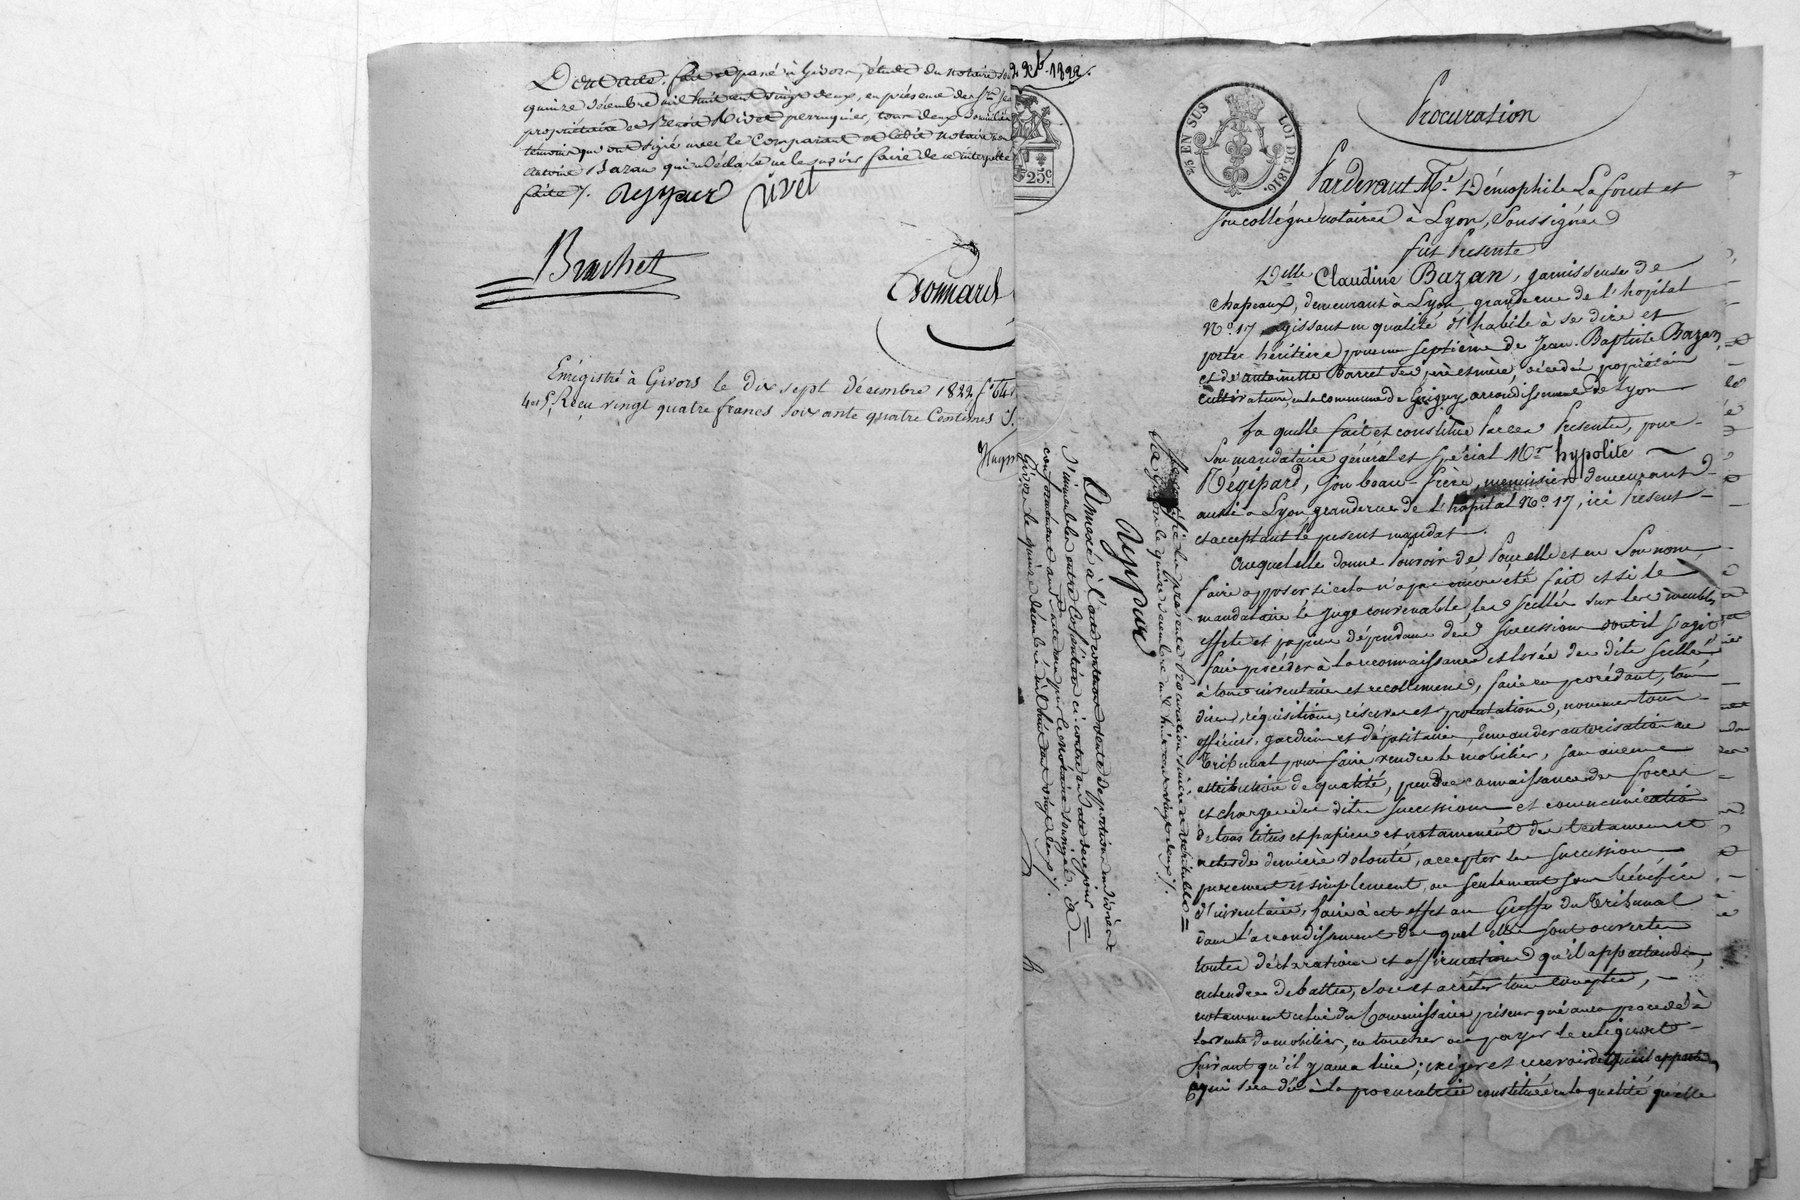 Dont acte. fait et passé à Givors, étude du notaire
quinze décembre mil huit cent vingt deux, en présence de Srs
propriétaire et Benoit Rivet perruquier, tous deux
témoins qui ont signé avec le Comparant et ledit notaire non
Antoine Bazan qui a déclaré ne le savoir faire de ce
faite /.
rivet
Brachet
Enrégistré à Givors le Dix sept Décembre 1822 f.° 64
Reçu vingt quatre francs soixante quatre Centimes
Xb. 1822.
25c
25 EN SUS LOI DE 1816.
Annexé à l'acte contenant vente de portion indivise
d'immeubles entre
conformément audit acte reçu par le notaire soussigné. à
Givors le quinze décembre mil huit cent vingt deux /.
la présente Procuration sincère et véritable =
Givors le quinze décembre mil huit cent vingt deux /.
Procuration
Pardevant Me. Démophile Laforest et
son collégue notaires à Lyon, Soussignés
fut Présente
Delle Claudine Bazan, garnisseuse de
chapeaux, demeurant à Lyon, grande rue de l'hopital
No. 17, agissant en qualité d'habile à se dire et
porter héritière pour un septième de Jean-Baptiste Bazan
et de antoinette Barret ses père et mère, décédés propriétaires
cultivateurs, en la commune de Grigny arrondissement de Lyon
Laquelle fait et constitue Par ces Présentes, pour
Son mandataire général et spécial Mr. hypolite
Régipard, son beau-frère, menuisier demeurant
aussi à Lyon grande rue de l'hopital No. 17, ici Présent
et acceptant le present mandat.
auquel elle donne Pouvoir de Pour elle et en Son nom,
faire apposer si cela n'a pas encore été fait et si le
mandataire le juge convenable les scellés sur les meubles
effets et papiers dépendans des successions dont il s'agit
faire procéder à la reconnaissance et levée des dits scellés
à tous inventaires et recollemens, faire en procédant, tous
dires, réquisitions, réserves et protestations, nommer tous
officiers, gardiens et dépositaires, demander autorisation au
Tribunal pour faire vendre le mobilier, sans aucune
attribution de qualité, prendre connaissance des forces
et charges des dites successions et communication
de tous titres et papiers et notamment des testamens et
actes de dernière volonté, accepter les successions
purement et simplement, ou seulement sous bénéfice
d'inventaire, faire à cet effet au Greffe du Tribunal
dans l'arrondissement duquel elles sont ouvertes
toutes déclarations et affirmations qu'il appartiendra,
entendre debattre, clore et arrêter tous comptes,
notamment celui du Commissaire priseur qui aura procédé à
la vente du mobilier, en toucher ou payer le reliquat
Suivant qu'il y aura lieu; exiger et recevoir
qui sera dû à la procuratrice constituée en la qualité qu'elle